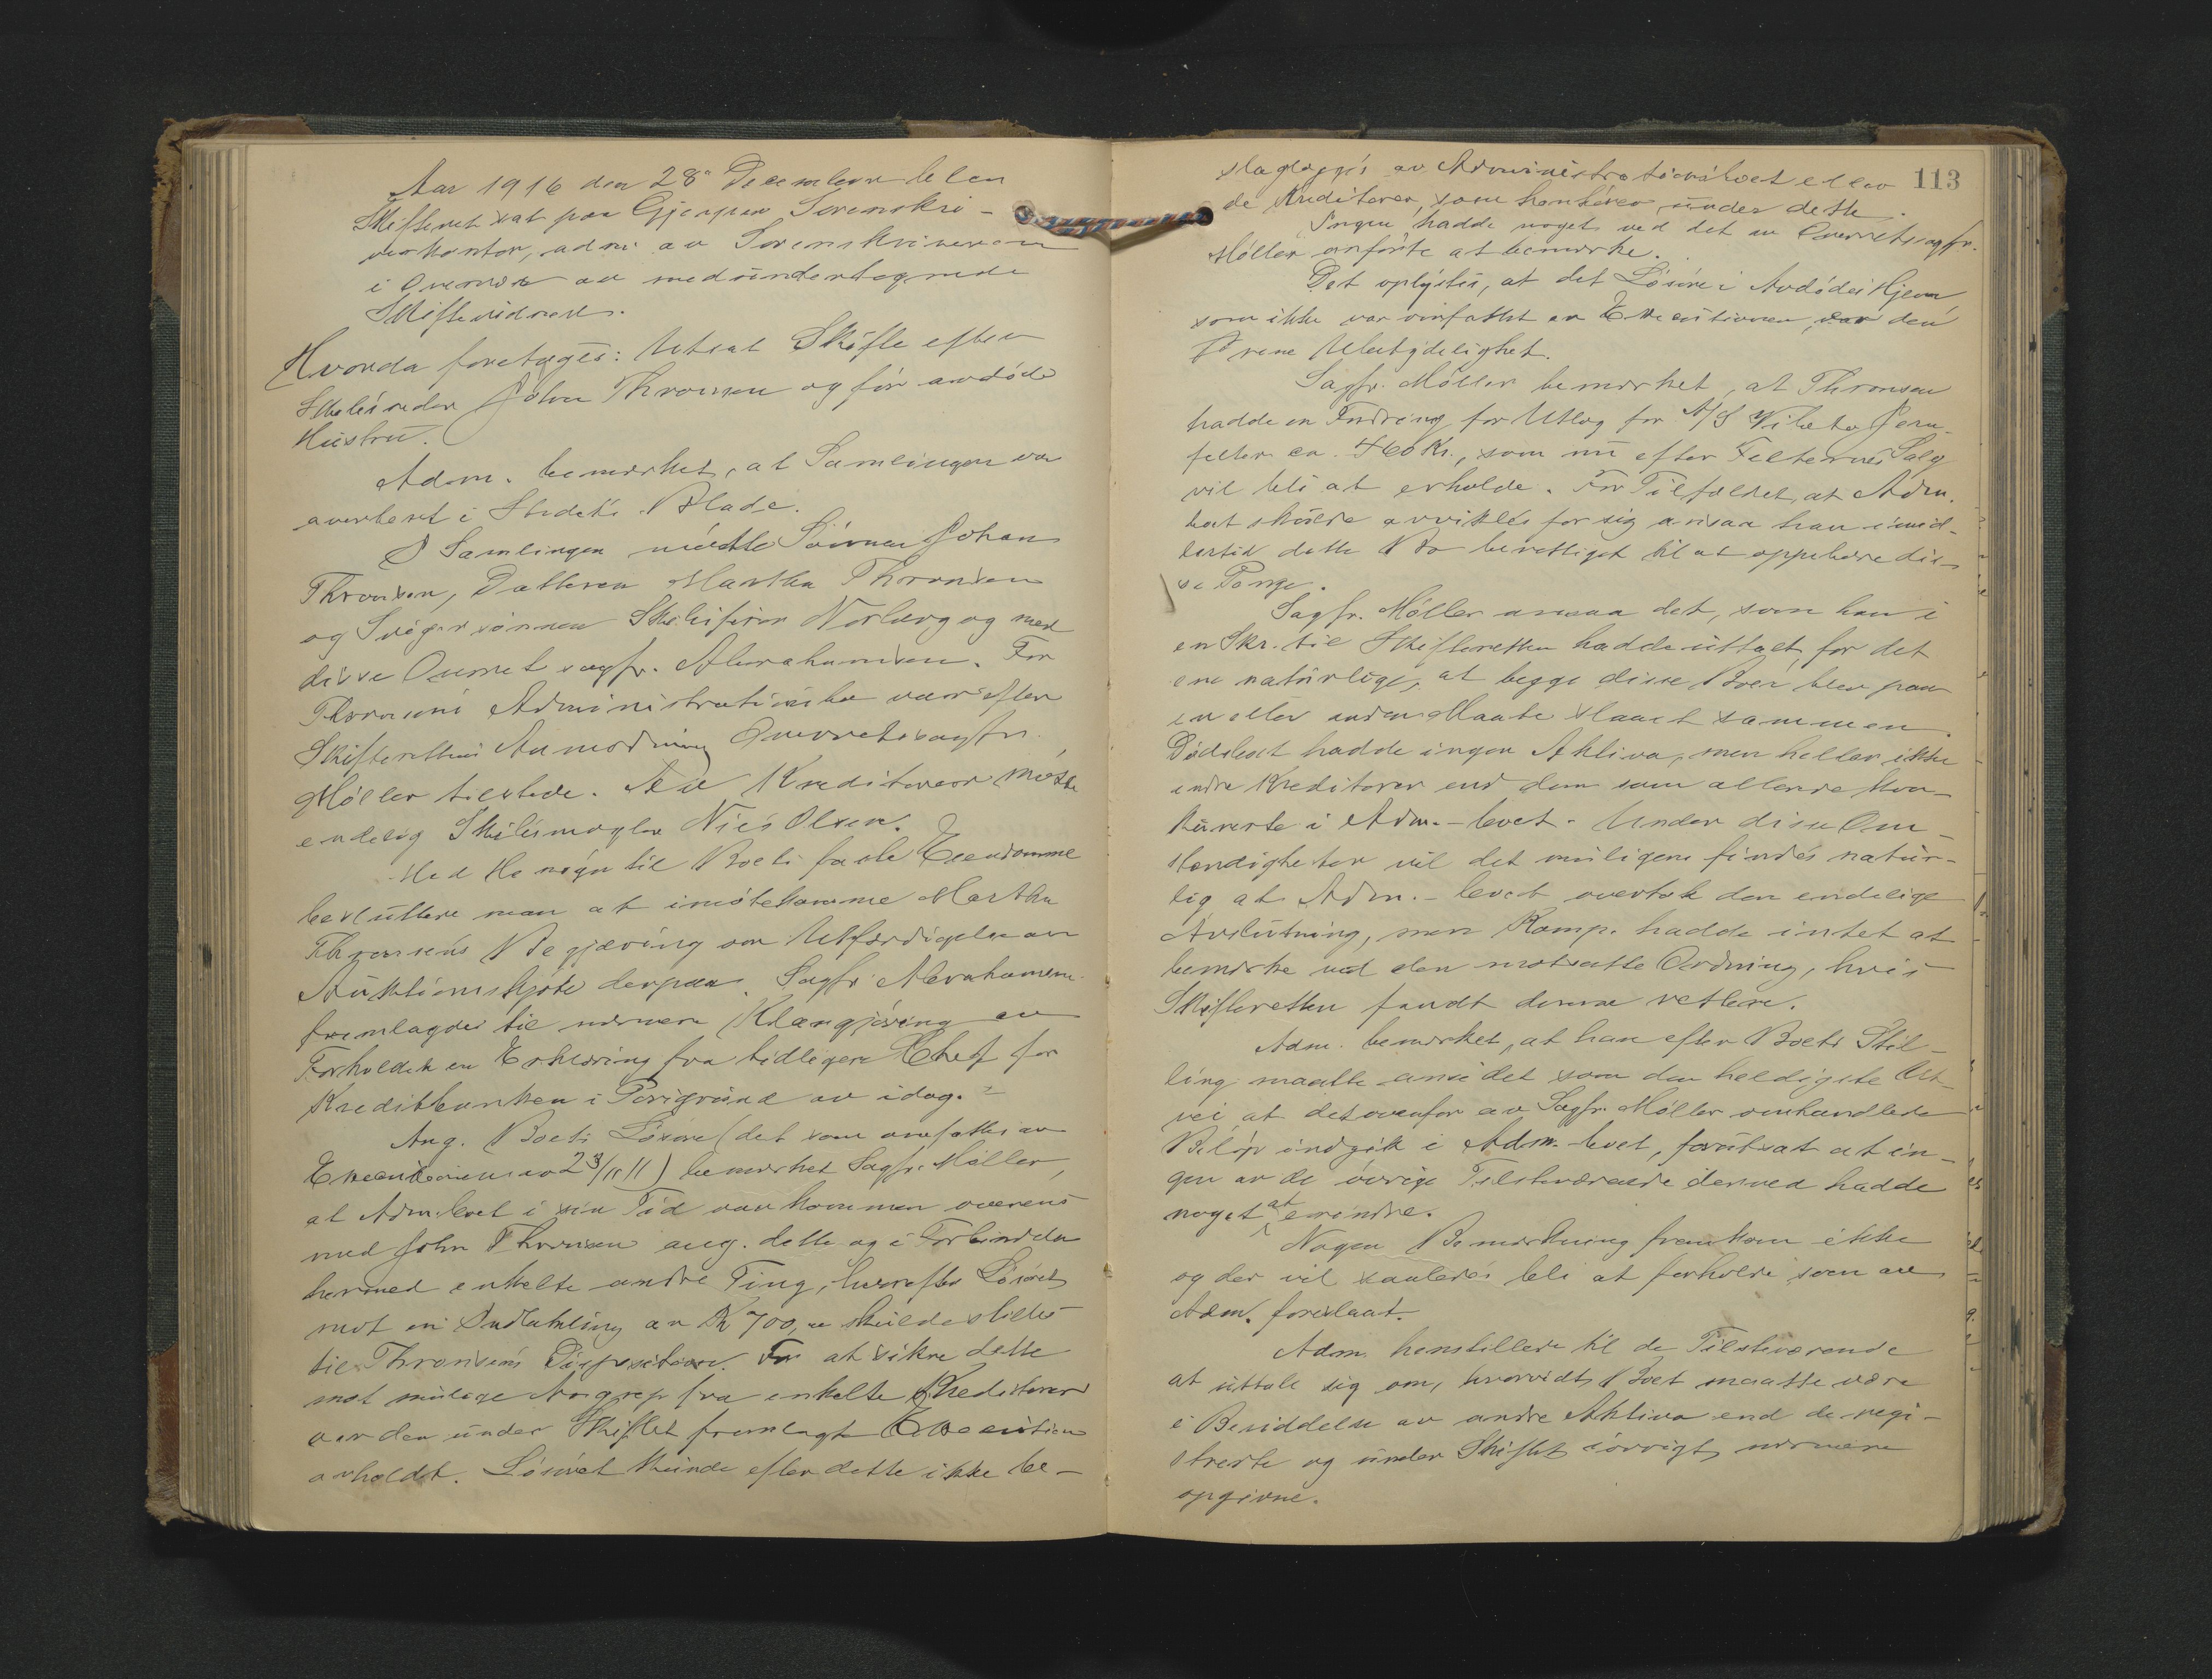 Aar 1916 den 28de December blev
Skifteret sat paa Gjerpen Sorenskri-
verkontor, adm. av Sorenskriveren
i Overvær av medundertegnede
Skiftevidner.
Hvorda foretages: Utsat Skifte efter
Skibsreder John Thronsen og før avdøde
Hustru.
Adm. bemerket, at Samlingen var
averteret i Stedets Blade.
I Samlingen møtte Sønnen Johan
Thronsen, Datteren Martha Thronsen
og Svigersønnen Skibsfører Norberg og med
disse Overretssagfr. Abrahamsen. For
Thronsens Administrationsbo var efter
Skifterettens Anmodning Overretssagfr.
Møller tilstede. Av Kreditorer møtte
endelig Skibsmægler Nils Olsen.
Med Hensyn til Boets faste Eiendomme
besluttede man at imøtekomme Martha
Thronsens Begjæring om Utfærdigelse av
Auktionsskjøte derpaa. Sagfr. Abrahamsen
fremlagde til nærmere Klargjøring av
Forholdet en Erklæring fra tidligere Chef for
Kreditbanken i Porsgrund av idag.
Ang. Boets Løsøre (det som omfattes av
Executionen av 23/11 11) bemerket Sagfr. Møller,
at Adm.boet i sin Tid var kommen overens
med John Thronsen ang. dette og i Forbindelse
hermed enkelte andre Ting, hvorefter Løsøret
mot en Indbetaling av Kr 700,00 skulde stilles
til Thronsens Disposition. For at sikre dette
mot mulige Angrep fra enkelte Kreditorer
var den under Skiftet fremlagte Execution
avholdt. Løsøret kunde efter dette ikke be-
113
slaglægges av Administrationsboet eller
de Kreditorer, som henhører under dette.
Ingen hadde noget ved det av Overretssagfr.
Møller anførte at bemerke.
Det oplystes, at det Løsøre i Avdødes Hjem
som ikke var omfattet av Executionen, var den
rene Ubetydelighet.
Sagfr. Møller bemerket, at Thronsen
hadde en Fordring for Utlæg for A/S Jern-
felter ca. 460 Kr., som nu efter Felternes Salg
vil bli at erholde. For Tilfældet, at Adm.
boet skulde avvikles for sig ansaa han imid-
lertid dette Bo berettiget til at oppebære dis-
se Penge.
Sagfr. Møller ansaa det, som han i
en Skr. til Skifteretten hadde uttalt for det
ene naturlige, at begge disse Boer blev paa
en eller anden Maate slaaet sammen.
Dødsboet hadde ingen Aktiva, men heller ikke
andre Kreditorer end dem som allerede kon-
kurrerte i Adm.-boet. Under disse Om-
stendigheter vil det muligens findes natur-
lig at Adm.-boet overtok den endelige
Avslutning, men Komp. hadde intet at
bemerke ved den motsatte Ordning, hvis
Skifteretten fandt denne rettere.
Adm. bemerket, at han efter Boets Stil-
ling maatte anse det som den heldigste Ut-
vei, at det ovenfor av Sagfr. Møller omhandlede
Beløp indgik i Adm.boet, forutsat at in-
gen av de øvrige Tilstedeværende derved hadde
noget at erindre.
Nogen Bemerkning fremkom ikke
og der vil saaledes bli at forholde som av
Adm. foreslaat.
Adm. henstillede til de Tilstedeværende
at uttale sig om, hvorvidt Boet maatte være
i Besiddelse av andre Aktiva end de regi-
strerte og under Skiftet iøvrigt nærmere
opgivne.